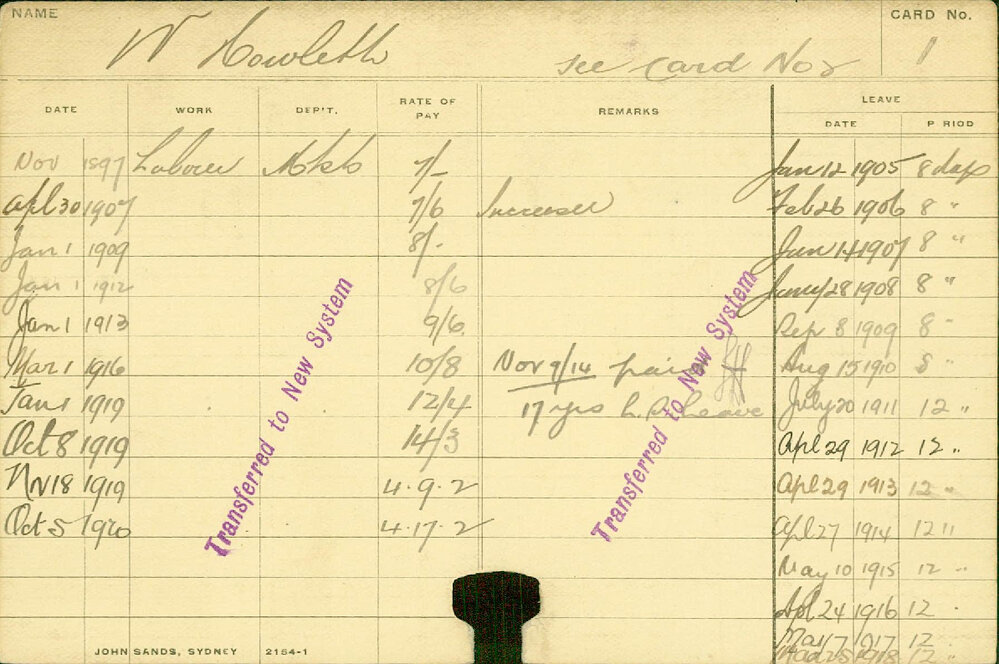 NAME
CARD No.
W Howlett
See Card No 2
1
DATE WORK DEP'T. RATE OF PAY REMARKS LEAVE
DATE P RIOD
Nov 1897 Labourer 7/- Jan 12 1905 8 days
Apl 30 1907 7/6 Increased Feb 26 1906 8 "
Jan 1 1909 8/- Jun 14 1907 8 "
Jan 1 1912 8/6 28 1908 8 "
Jan 1 1913 9/6 Sep 8 1909 8 "
Mar 1 1916 10/8 Nov 9/14 paid Aug 15 1910 8 "
Jan 1 1919 12/4 17 yrs L.S. Leave July 20 1911 12 "
Oct 8 1919 14/3 Apl 29 1912 12 "
Nv 18 1919 4.9.2 Apl 29 1913 12 "
Oct 5 1920 4.17.2 Apl 27 1914 12 "
May 10 1915 12 "
Apl 24 1916 12 "
Mar 7 1917 12
1918 12 "
Transferred to New System
Transferred to New System
JOHN SANDS, SYDNEY 2154-1